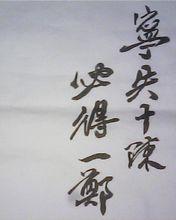 寧失十陳
必得一鄭